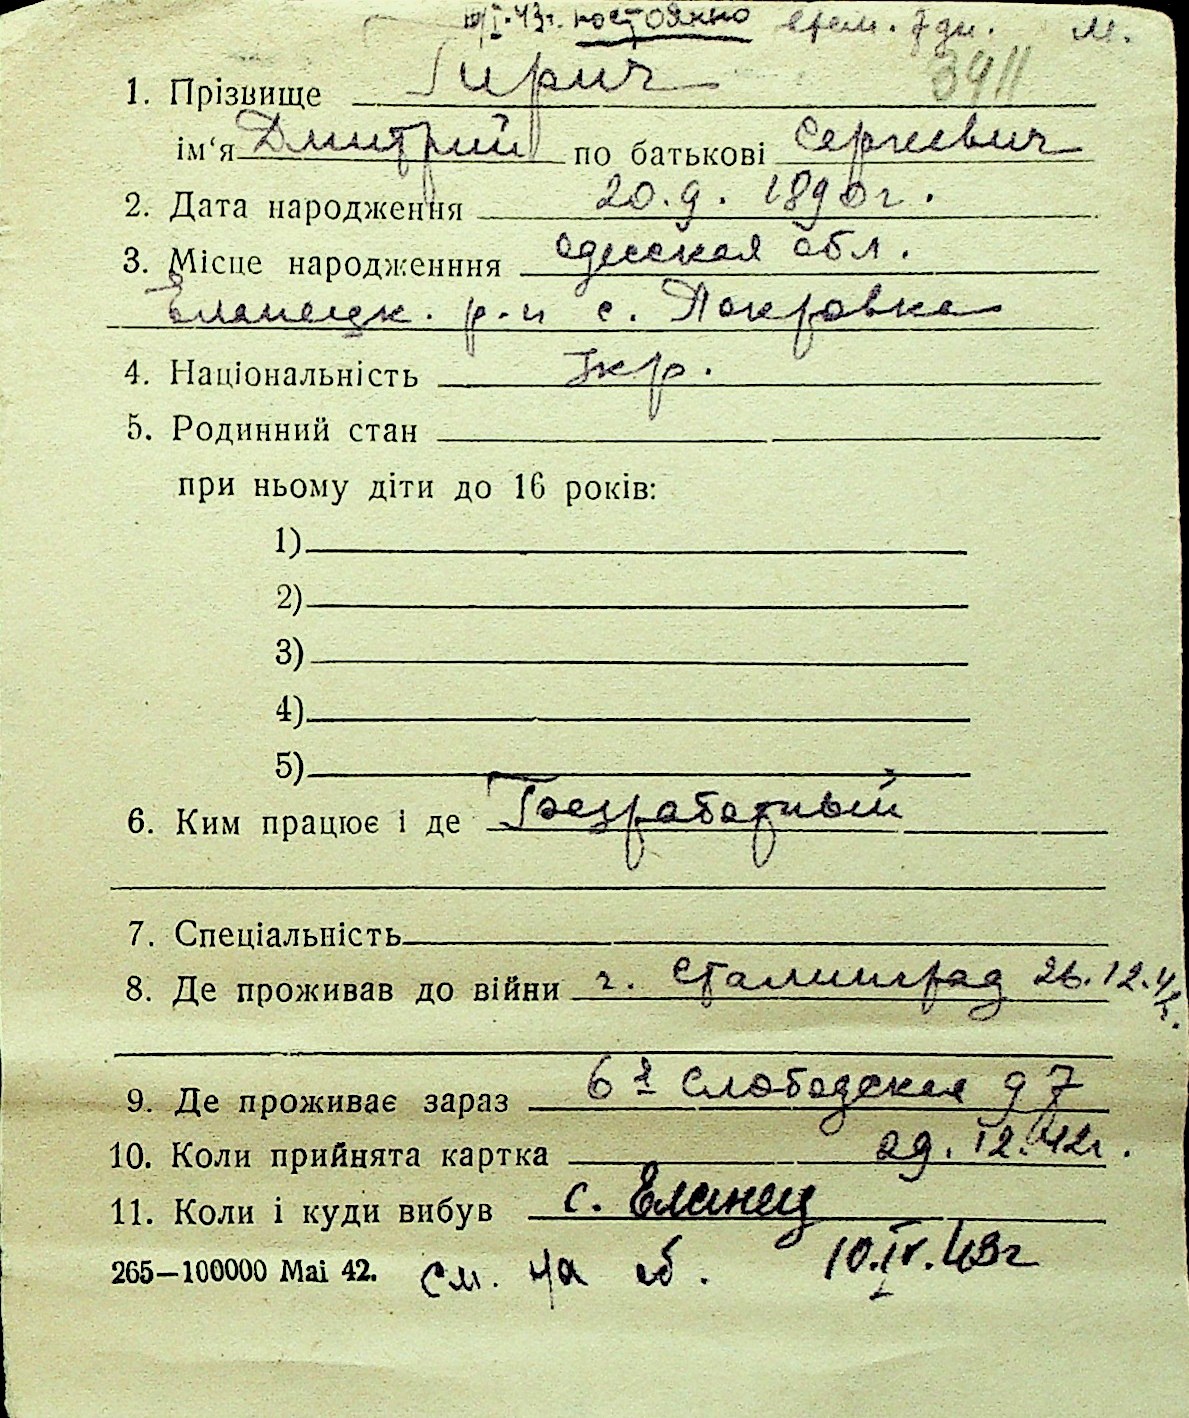 10/I.43г. постоянно врем. 7 дн. м.
3911
1. Прізвище Гирич
ім‘я Дмитрий по батькові Сергиевич
2. Дата народження 20.9. 1890г.
3. Місце народженння Одесская обл.
Еланецк. р-н с. Покровка
4. Національність Укр.
5. Родинний стан
при ньому діти до 16 років:
1)
2)
3)
4)
5)
6. Ким працює і де Безработный
7. Спеціальність
8. Де проживав до війни г. Сталинград 26.12.42г.
9. Де проживає зараз 6я Слободская д 7
10. Коли прийнята картка 29.12.42г.
11. Коли і куди вибув с. Еланец
265—100000 Маі 42. см. на об. 10.IV.43г